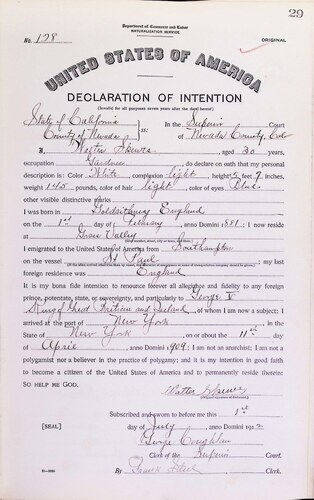 29
Department of Commerce and Labor
NATURALIZATION SERVICE
No. 128
ORIGINAL
UNITED STATES OF AMERICA
DECLARATION OF INTENTION
(Invalid for all purposes seven years after the date hereof)
State of California
County of Nevada
ss:
In the Superior Court
of Nevada County, Cal
I, Walter, aged 30 years,
occupation Gardner, do declare on oath that my personal
description is: Color White, complexion light, height 5 feet 7 inches,
weight 145 pounds, color of hair light, color of eyes Blue
other visible distinctive marks
I was born in Goldsithney England
on the 1st day of February, anno Domini 1881; I now reside
at Grass Valley
I emigrated to the United States of America from Southampton
on the vessel St Paul; my last
foreign residence was England
It is my bona fide intention to renounce forever all allegiance and fidelity to any foreign
prince, potentate, state, or sovereignty, and particularly to George V
King of Great Britain and Ireland, of whom I am now a subject; I
arrived at the port of New York, in the
State of New York, on or about the 11th day
of April, anno Domini 1909; I am not an anarchist; I am not a
polygamist nor a believer in the practice of polygamy; and it is my intention in good faith
to become a citizen of the United States of America and to permanently reside therein:
SO HELP ME GOD.
Walter
Subscribed and sworn to before me this 1st
[SEAL] day of July, anno Domini 1912
George Coughlan
Clerk of the Superior Court.
By, Clerk.